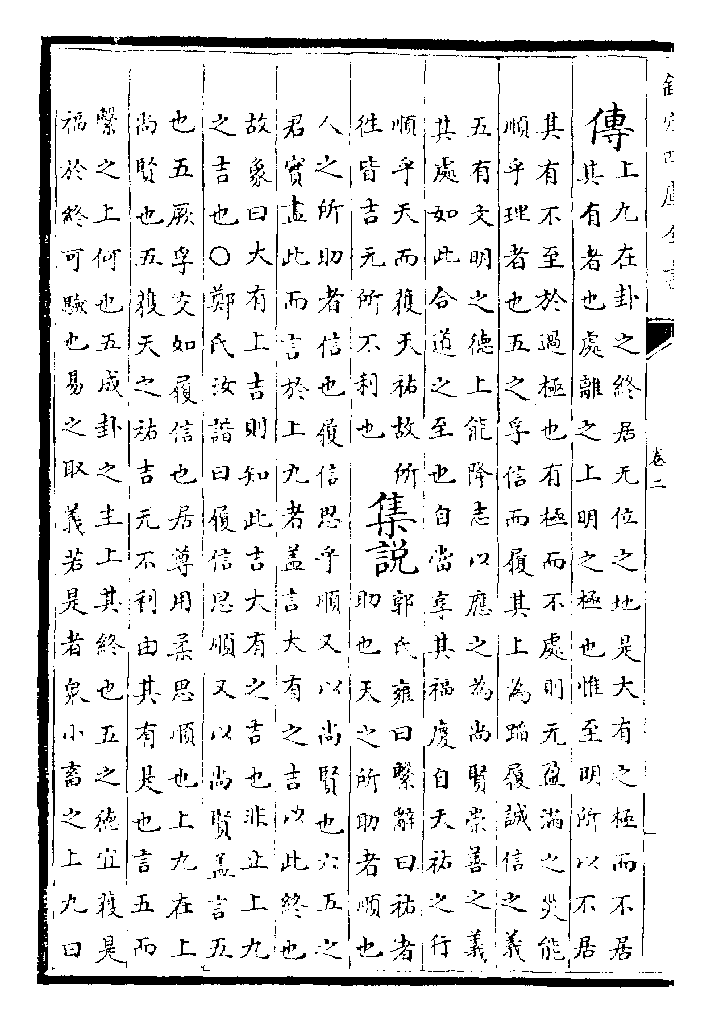 欽定四庫全書
卷二
傳
上九在卦之終居无位之地是大有之極而不居
其有者也處離之上明之極也惟至明所以不居
其有不至於過極也有極而不處則无盈滿之災能
順乎理者也五之孚信而履其上為蹈履誠信之義
五有文明之德上能降志以應之為尚賢崇善之義
其處如此合道之至也自當享其福慶自天祐之行
順乎天而獲天祐故所
往皆吉无所不利也
集說
郭氏雍曰繫辭曰祐者
助也天之所助者順也
人之所助者信也履信思乎順又以尚賢也六五之
君實盡此而言於上九者蓋言大有之吉以此終也
故象曰大有上吉則知此吉大有之吉也非止上九
之吉也○鄭氏汝諧曰履信思順又以尚賢蓋言五
也五厥孚交如履信也居尊用柔思順也上九在上
尚賢也五獲天之祐吉无不利由其有是也言五而
繫之上何也五成卦之主上其終也五之德宜獲是
福於終可驗也易之取義若是者眾小畜之上九曰